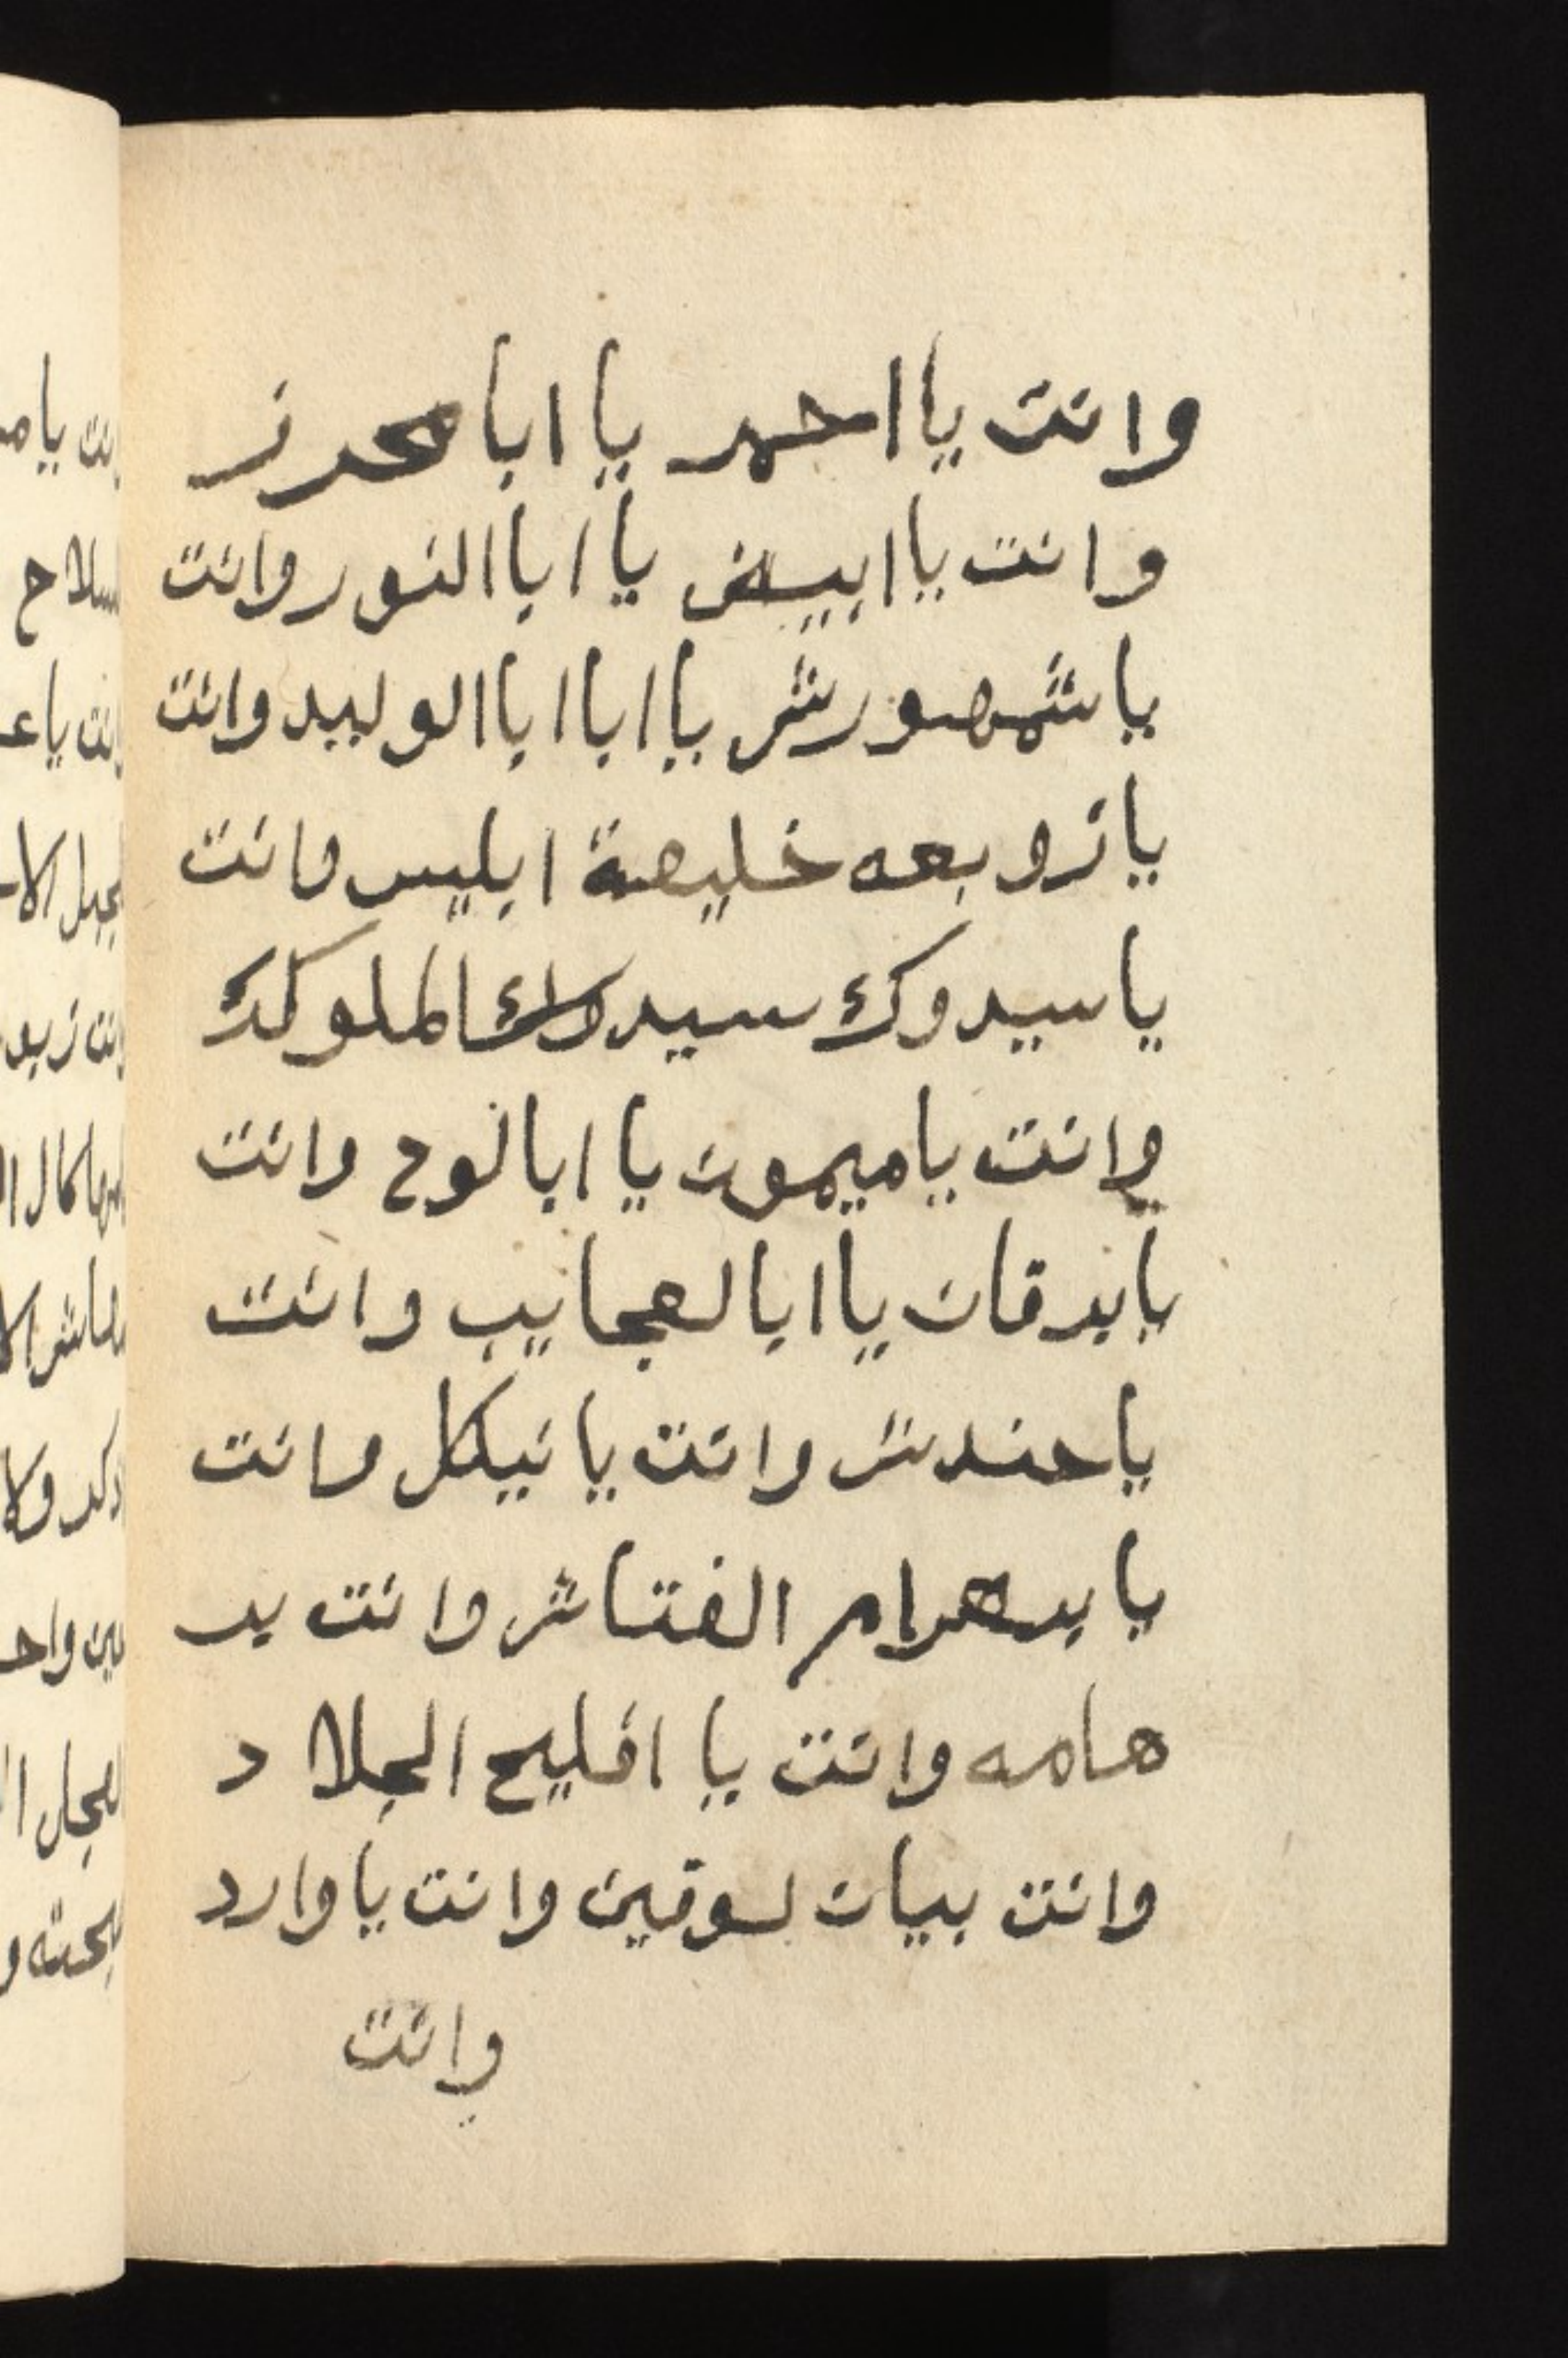 وانت يا احمر يا ابا محرز
وانت يا ابيض يا ابا النور وانت
يا شمهورش يا ابا ابا الوليد وانت
يا زوبعه خليفة ابليس وانت
يا سيدوك سيد الملوك
وانت يا ميمون يا ابا لوح وانت
يا برقان يا ابا لعجايب وانت
يا حندش وانت يا نيكل وانت
يا بهرام الفتاش وانت يا
هامه وانت يا افليح الجلاد
وانت بيان لوقين وانت يا وارد
وانت